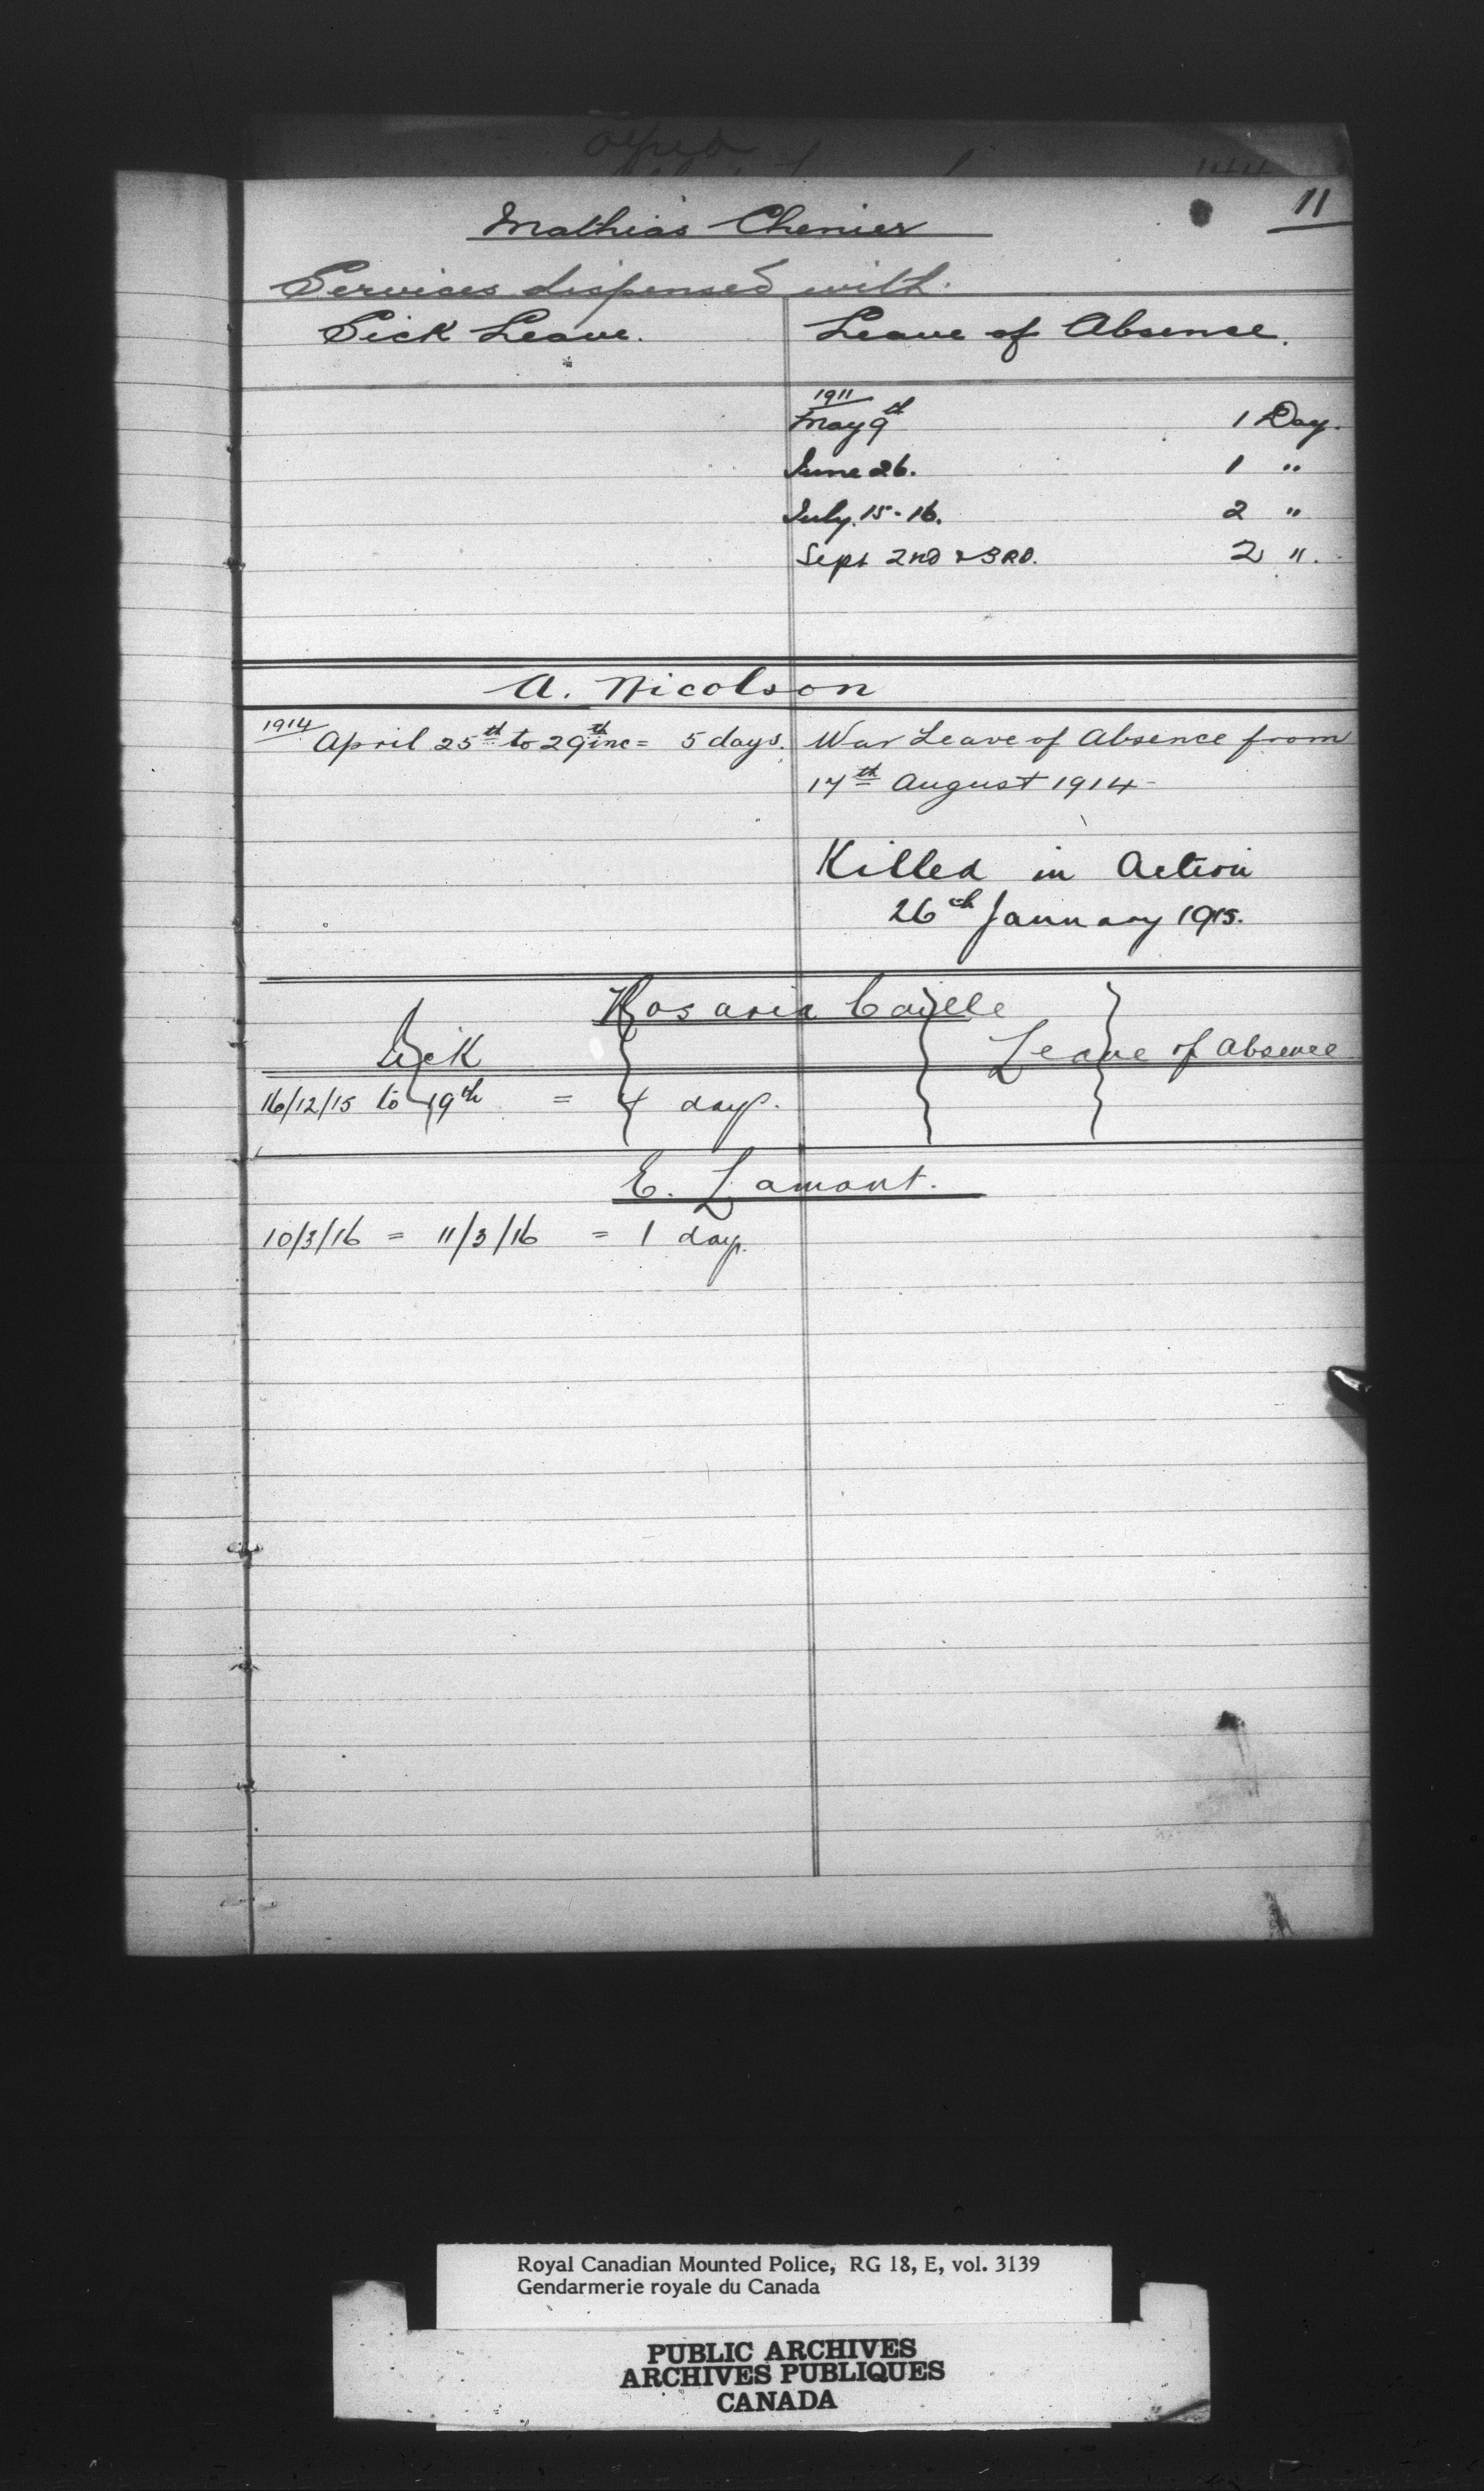 11
Mathias Chenier
Services dispensed with.
Sick Leave. Leave of Absence.
1911
May 9th 1 Day.
June 26. 1 "
July. 15-16. 2 "
Sept 2ND & 3RD. 2 ".
A. Nicolson
1914 April 25th to 29th inc = 5 days. War Leave of Absence from
17th August 1914-
Killed in Action
26th January 1915.
Sick Leave of Absence
16/12/15 to 19th = 4 days.
E. Lamont.
10/3/16 = 11/3/16 = 1 day.
Royal Canadian Mounted Police, RG 18, E, vol. 3139
Gendarmerie royale du Canada
PUBLIC ARCHIVES
ARCHIVES PUBLIQUES
CANADA